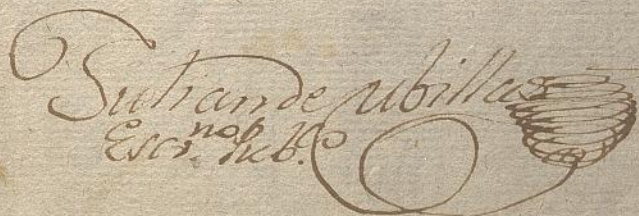 Julian de Cubillas
Escr.no pub.co